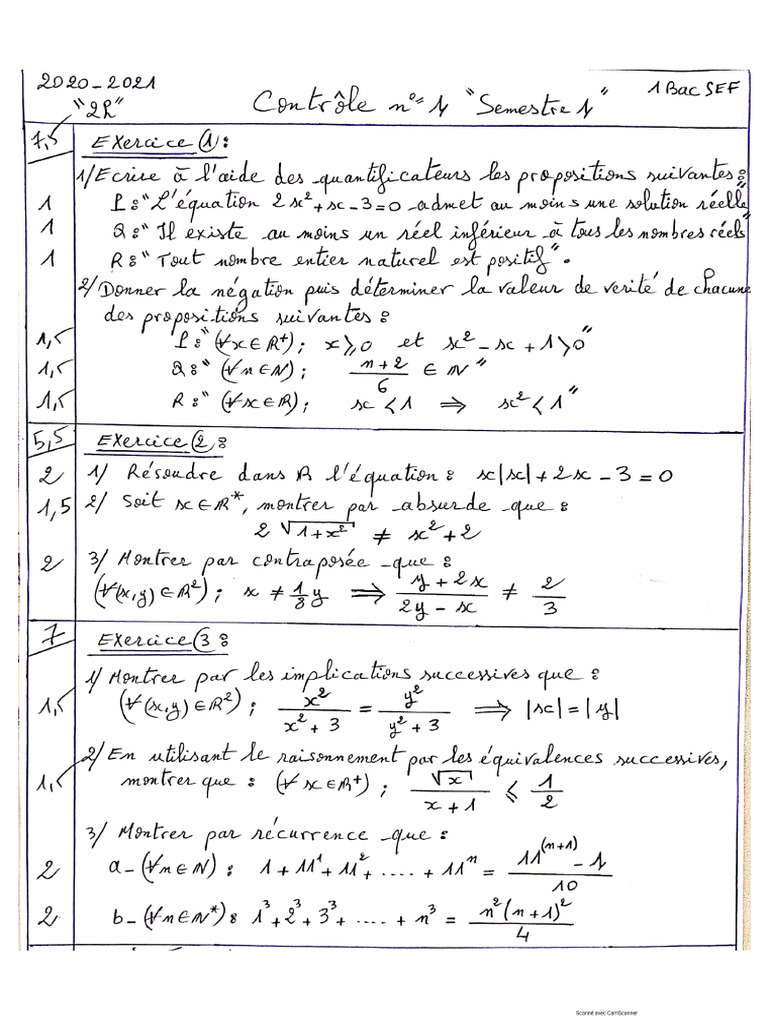 2020-2021
"2h"
Contrôle n°=1 "Semestre 1"
1 Bac SEF
7,5 Exercice ① :
1/ Ecrire à l'aide des quantificateurs les propositions suivantes :
1 P : "L'équation 2x²+x-3=0 admet au moins une solution réelle"
1 Q : "Il existe au moins un réel inférieur à tous les nombres réels"
1 R : "Tout nombre entier naturel est positif".
2/ Donner la négation puis déterminer la valeur de verité de chacune
des propositions suivantes :
1,5 P : "(∀x∈ℝ⁺) ; x⩾0 et x²-x+1>0"
1,5 Q : "(∀n∈ℕ) ; (n+2)/6 ∈ ℕ"
1,5 R : "(∀x∈ℝ) ; x<1 ⟹ x²<1"
5,5 Exercice ② :
2 1/ Résoudre dans ℝ l'équation : x|x|+2x-3=0
1,5 2/ Soit x∈ℝ*, montrer par absurde que :
2√(1+x²) ≠ x²+2
2 3/ Montrer par contraposée que :
(∀(x,y)∈ℝ²) ; x ≠ 1/8 y ⟹ (y+2x)/(2y-x) ≠ 2/3
7 Exercice ③ :
1/ Montrer par les implications successives que :
1,5 (∀(x,y)∈ℝ²) ; x²/(x²+3) = y²/(y²+3) ⟹ |x|=|y|
2/ En utilisant le raisonnement par les équivalences successives,
1,5 montrer que : (∀x∈ℝ⁺) ; √x/(x+1) ⩽ 1/2
3/ Montrer par récurrence que :
2 a- (∀n∈ℕ) : 1+11¹+11²+.....+11ⁿ = (11⁽ⁿ⁺¹⁾-1)/10
2 b- (∀n∈ℕ*) : 1³+2³+3³+.....+n³ = n²(n+1)²/4
Scanné avec CamScanner